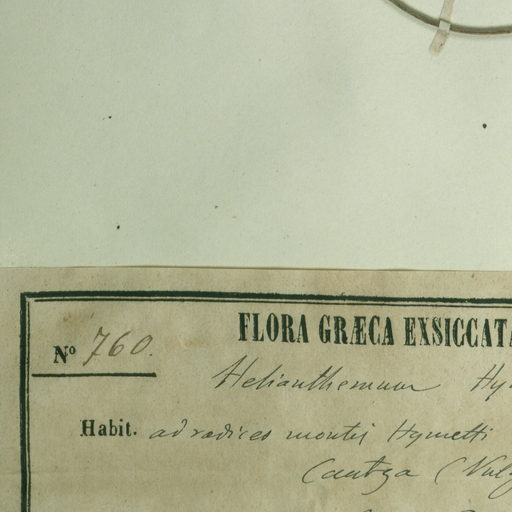 FLORA GRÆCA EXSICCATA
Nº 760.
Helianthemum Hy
Habit. ad radices montis Hymetti